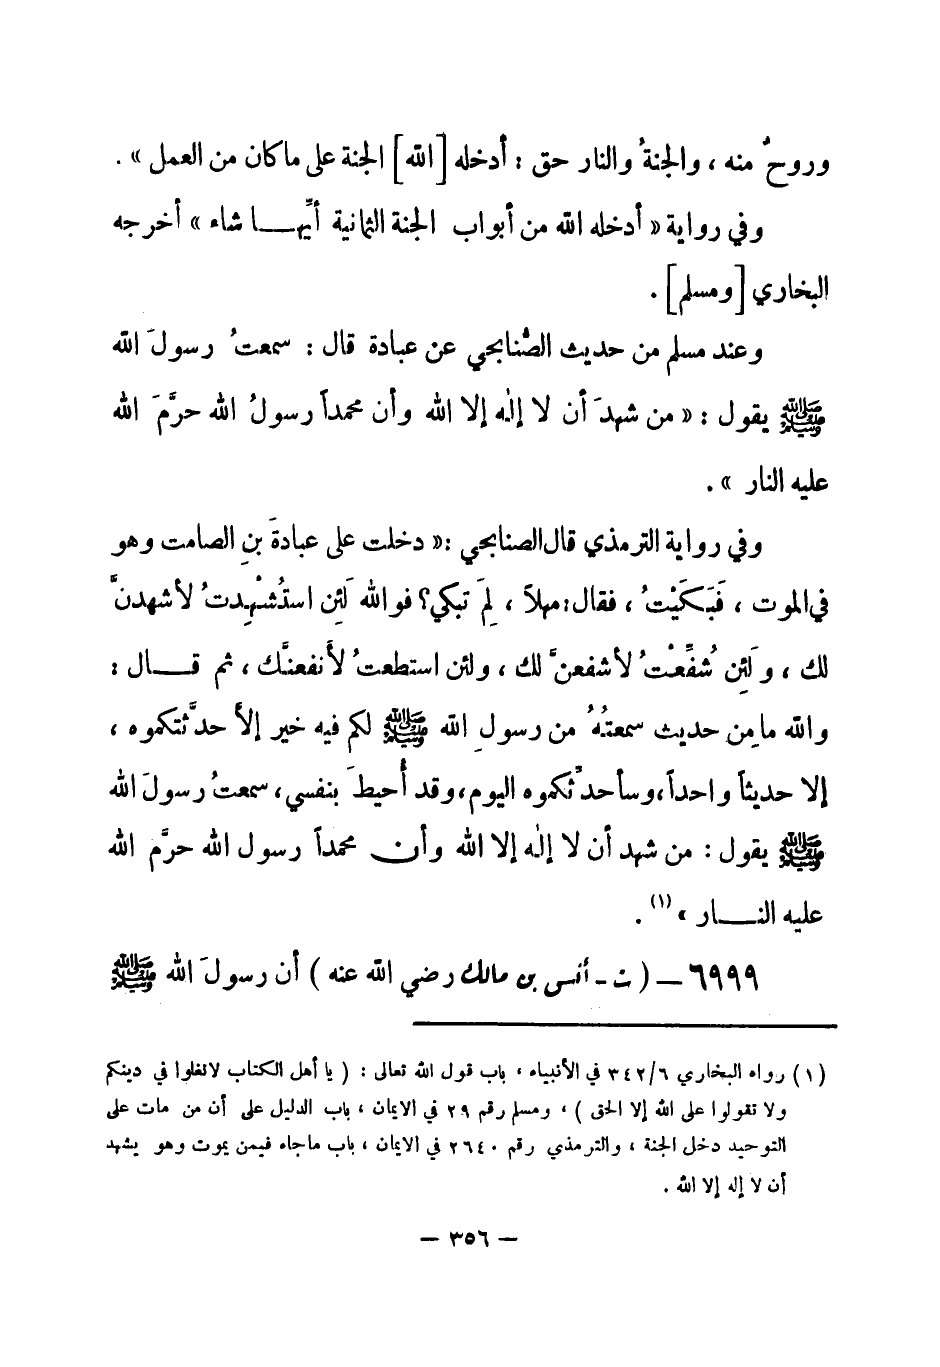 وروحٌ منه ، والجنةُ والنار حق : أدخله [الله] الجنة على ما كان من العمل » .
وفي رواية « أدخله الله من أبواب الجنة الثمانية أيِّهـــا شاء » أخرجه
البخاري [ومسلم] .
وعند مسلم من حديث الصُّنابحي عن عبادة قال : سمعتُ رسولَ الله
ﷺ يقول : « من شهدَ أن لا إلٰه إلا الله وأن محمداً رسولُ الله حرَّمَ الله
عليه النار » .
وفي رواية الترمذي قال الصنابحي :« دخلت على عبادةَ بنِ الصامت وهو
في الموت ، فَبَكَيْتُ ، فقال: مهلاً ، لِمَ تبكي؟ فوالله لَئِن استُشْهِدتُ لأشهدنَّ
لك ، ولَئِن شُفِّعْتُ لأشفعنَّ لك ، ولئن استطعتُ لأنفعنَّك ، ثم قـــال :
والله ما مِن حديث سمعتُهُ من رسولِ الله ﷺ لكم فيه خير إلاَّ حدَّثتكموه ،
إلا حديثاً واحداً ،وسأحدِّثكموه اليوم ،وقد أُحيطَ بنفسي، سمعتُ رسولَ الله
ﷺ يقول : من شهد أن لا إلٰه إلا الله وأن محمداً رسول الله حرَّم الله
عليه النـــار »(١) .
٦٩٩٩ ــ ( ت ـ أنس بن مالك رضي الله عنه ) أن رسولَ الله ﷺ
(١) رواه البخاري ٣٤٢/٦ في الأنبياء ، باب قول الله تعالى : ( يا أهل الكتاب لا تغلوا في دينكم
ولا تقولوا على الله إلا الحق ) ، ومسلم رقم ٢٩ في الايمان ، باب الدليل على أن من مات على
التوحيد دخل الجنة ، والترمذي رقم ٢٦٤٠ في الايمان ، باب ماجاء فيمن يموت وهو يشهد
أن لا إله إلا الله .
ــ ٣٥٦ ــ